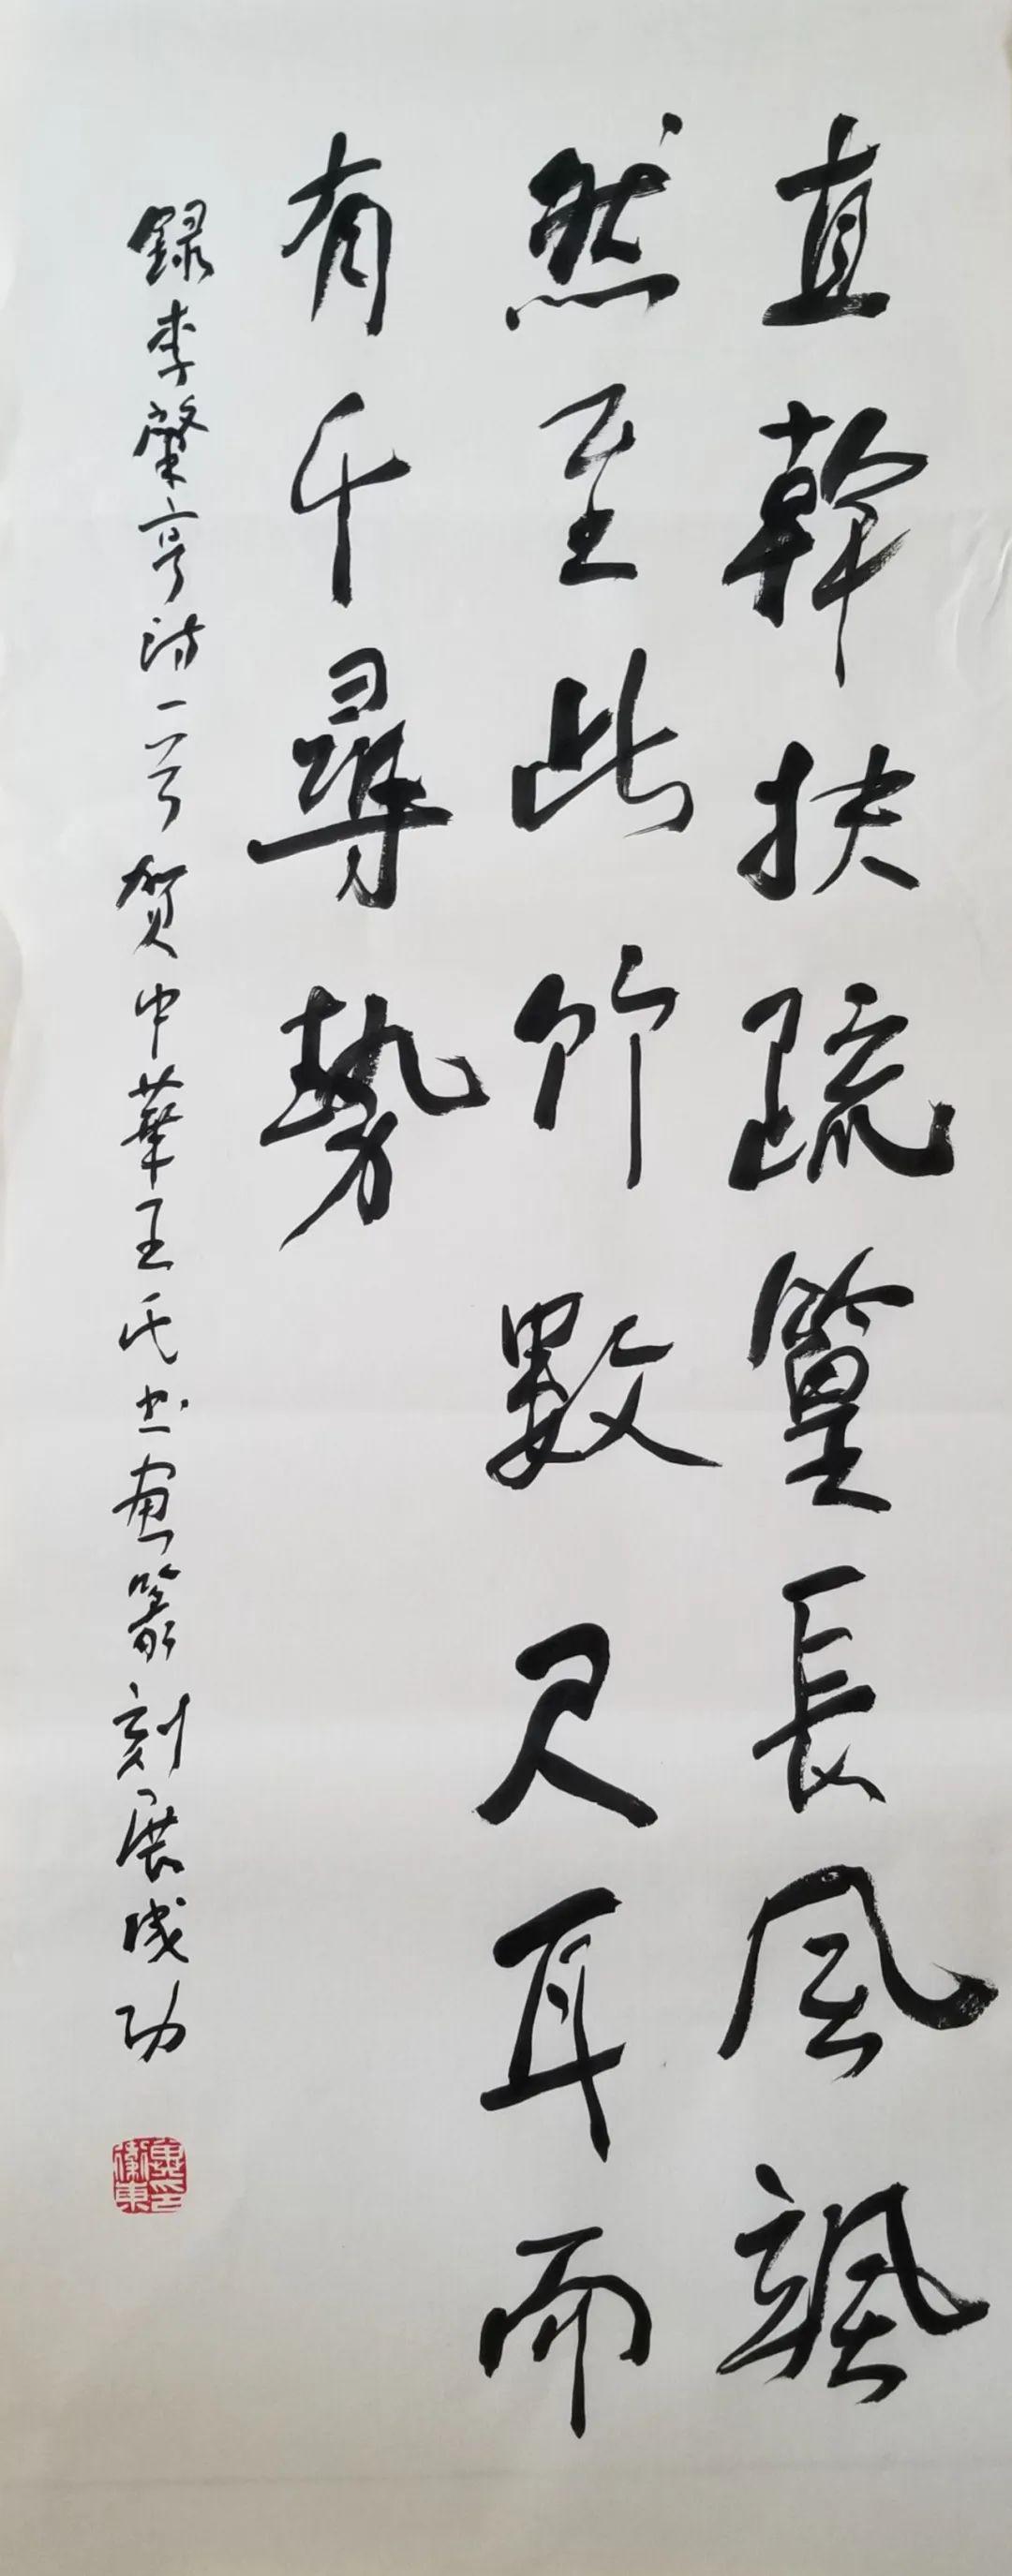 直幹扶疏篁長風颯
然至此竹數尺耳而
有千尋勢
錄李肇亨詩一首賀中華王氏书画篆刻展成功